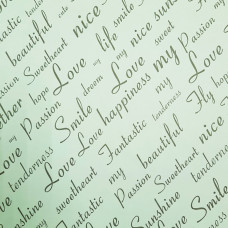 cute nice sweet
beautiful life smile
Passion Sweetheart Love my Passion
hope my dream happiness my tenderness Fly
Love Passion Smile Fantastic beautiful nice
tenderness Love Love my my Sweetheart tenderness
Sunshine sweetheart Fantastic Passion Sunshine
Smile my nice